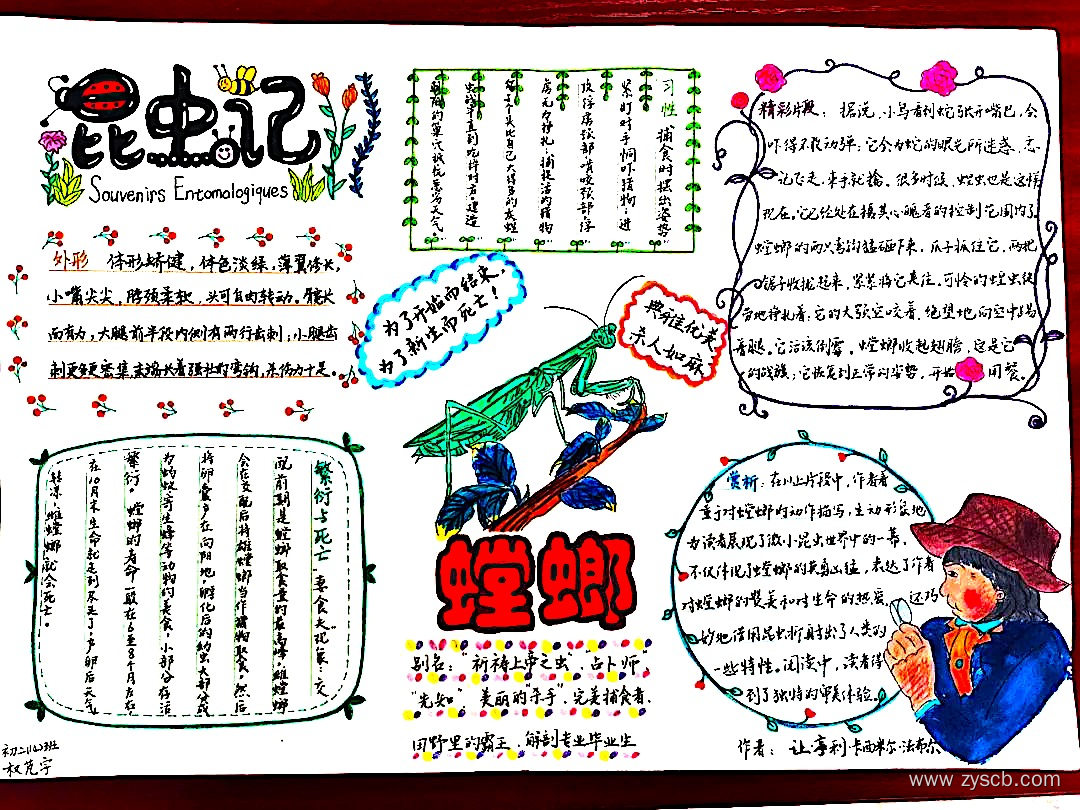 昆虫记
Souvenirs Entomologiques
外形 体形矫健，体色淡绿，薄翼修长，
小嘴尖尖，脖颈柔软，头可自由转动。腿长
而有力，大腿前半段内侧有两行齿刺；小腿齿
刺更多更密集，末端长着强壮的弯钩，杀伤力十足。
习性 捕食时摆出姿势，
紧盯对手恫吓猎物；进
攻俘虏颈部，
房无力挣扎；捕捉活的猎物，
甚至会吃比自己大得多的灰蝗
虫，
的巢穴抵抗恶劣天气。
精彩片段：据说，小鸟看到蛇张开嘴巴，会
吓得不敢动弹；它会为蛇的眼光所迷惑，忘
记飞走，束手就擒。很多时候，蝗虫也是这样
现在，它已经处在摄其心魄者的控制范围内了
螳螂的两只弯钩猛砸下来，爪子抓住它，两把
锯子收拢起来，紧紧将它夹住。可怜的蝗虫徒
劳地挣扎着；它的大颚空咬着，绝望地向空中踢
着腿。它活该倒霉。螳螂收起翅膀，这是它
的战旗；它恢复到正常的姿势，开始用餐。
为了开始而结束，
为了新生而死亡！
典雅优美
杀人如麻
繁衍与死亡 “妻食夫现象”：交
配前期是螳螂取食量的最高峰，雌螳螂
会在交配后将雄螳螂当作猎物取食。然后
将卵囊产在向阳地，孵化后的幼虫大部分成
为蚂蚁、寄生蜂等动物的美食，小部分存活
繁衍。螳螂的寿命一般在6至8个月左右，
在10月末生命就走到尽头了，产卵后天气
转凉，雌螳螂就会死亡。
螳螂
别名：“祈祷上帝之虫”，占卜师”，
“先知”，美丽的“杀手”，完美捕食者，
田野里的霸主，解剖专业毕业生
赏析：在以上片段中，作者着
重于对螳螂的动作描写，生动形象地
为读者展现了微小昆虫世界中的一幕，
不仅体现了螳螂的英勇凶猛，表达了作者
对螳螂的赞美和对生命的热爱，还巧
妙地借用昆虫折射出了人类的
一些特性。阅读中，读者得
到了独特的审美体验。
作者：让·亨利·卡西米尔·法布尔
www.zyscb.com